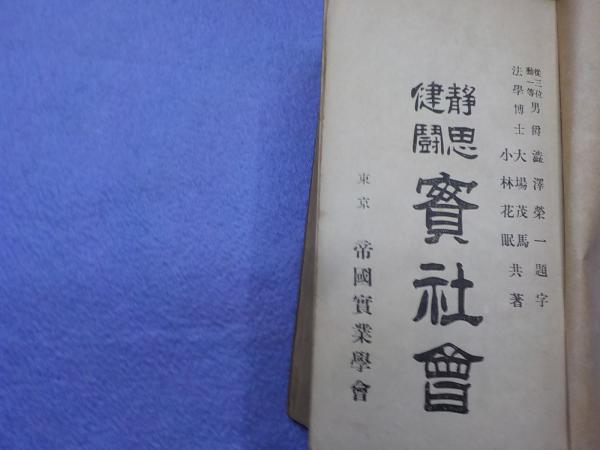 從三位
勳一等 男爵 澁澤榮一題字
法學博士 大場茂馬
小林花眠 共著
靜思
健鬪 實社會
東京 帝國實業學會